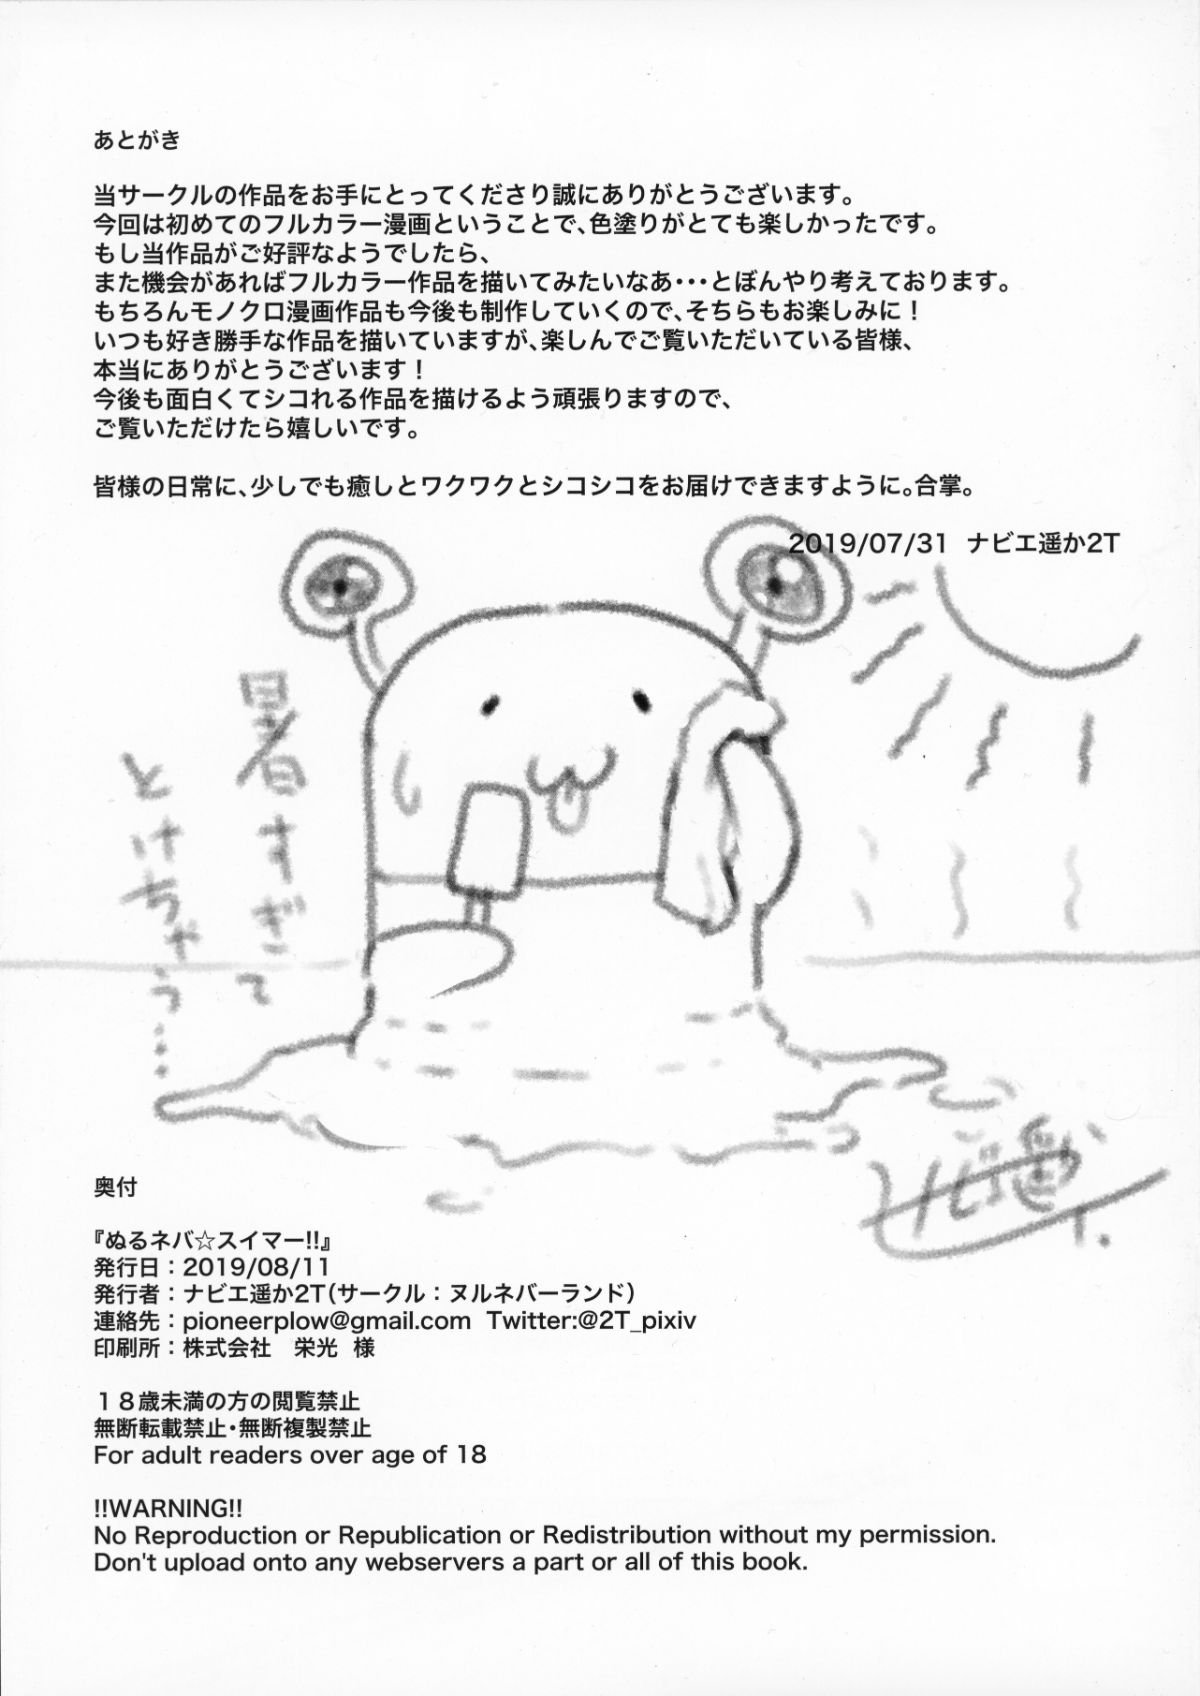 あとがき
当サークルの作品をお手にとってくださり誠にありがとうございます。
今回は初めてのフルカラー漫画ということで、色塗りがとても楽しかったです。
もし当作品がご好評なようでしたら、
また機会があればフルカラー作品を描いてみたいなあ・・・とぼんやり考えております。
もちろんモノクロ漫画作品も今後も制作していくので、そちらもお楽しみに！
いつも好き勝手な作品を描いていますが、楽しんでご覧いただいている皆様、
本当にありがとうございます！
今後も面白くてシコれる作品を描けるよう頑張りますので、
ご覧いただけたら嬉しいです。
皆様の日常に、少しでも癒しとワクワクとシコシコをお届けできますように。合掌。
2019/07/31 ナビエ遥か2T
暑すぎて
とけちゃう…
ナビエ遥か2T.
奥付
『ぬるネバ☆スイマー!!』
発行日：2019/08/11
発行者：ナビエ遥か2T(サークル：ヌルネバーランド)
連絡先：pioneerplow@gmail.com Twitter:@2T_pixiv
印刷所：株式会社　栄光 様
１８歳未満の方の閲覧禁止
無断転載禁止・無断複製禁止
For adult readers over age of 18
!!WARNING!!
No Reproduction or Republication or Redistribution without my permission.
Don't upload onto any webservers a part or all of this book.